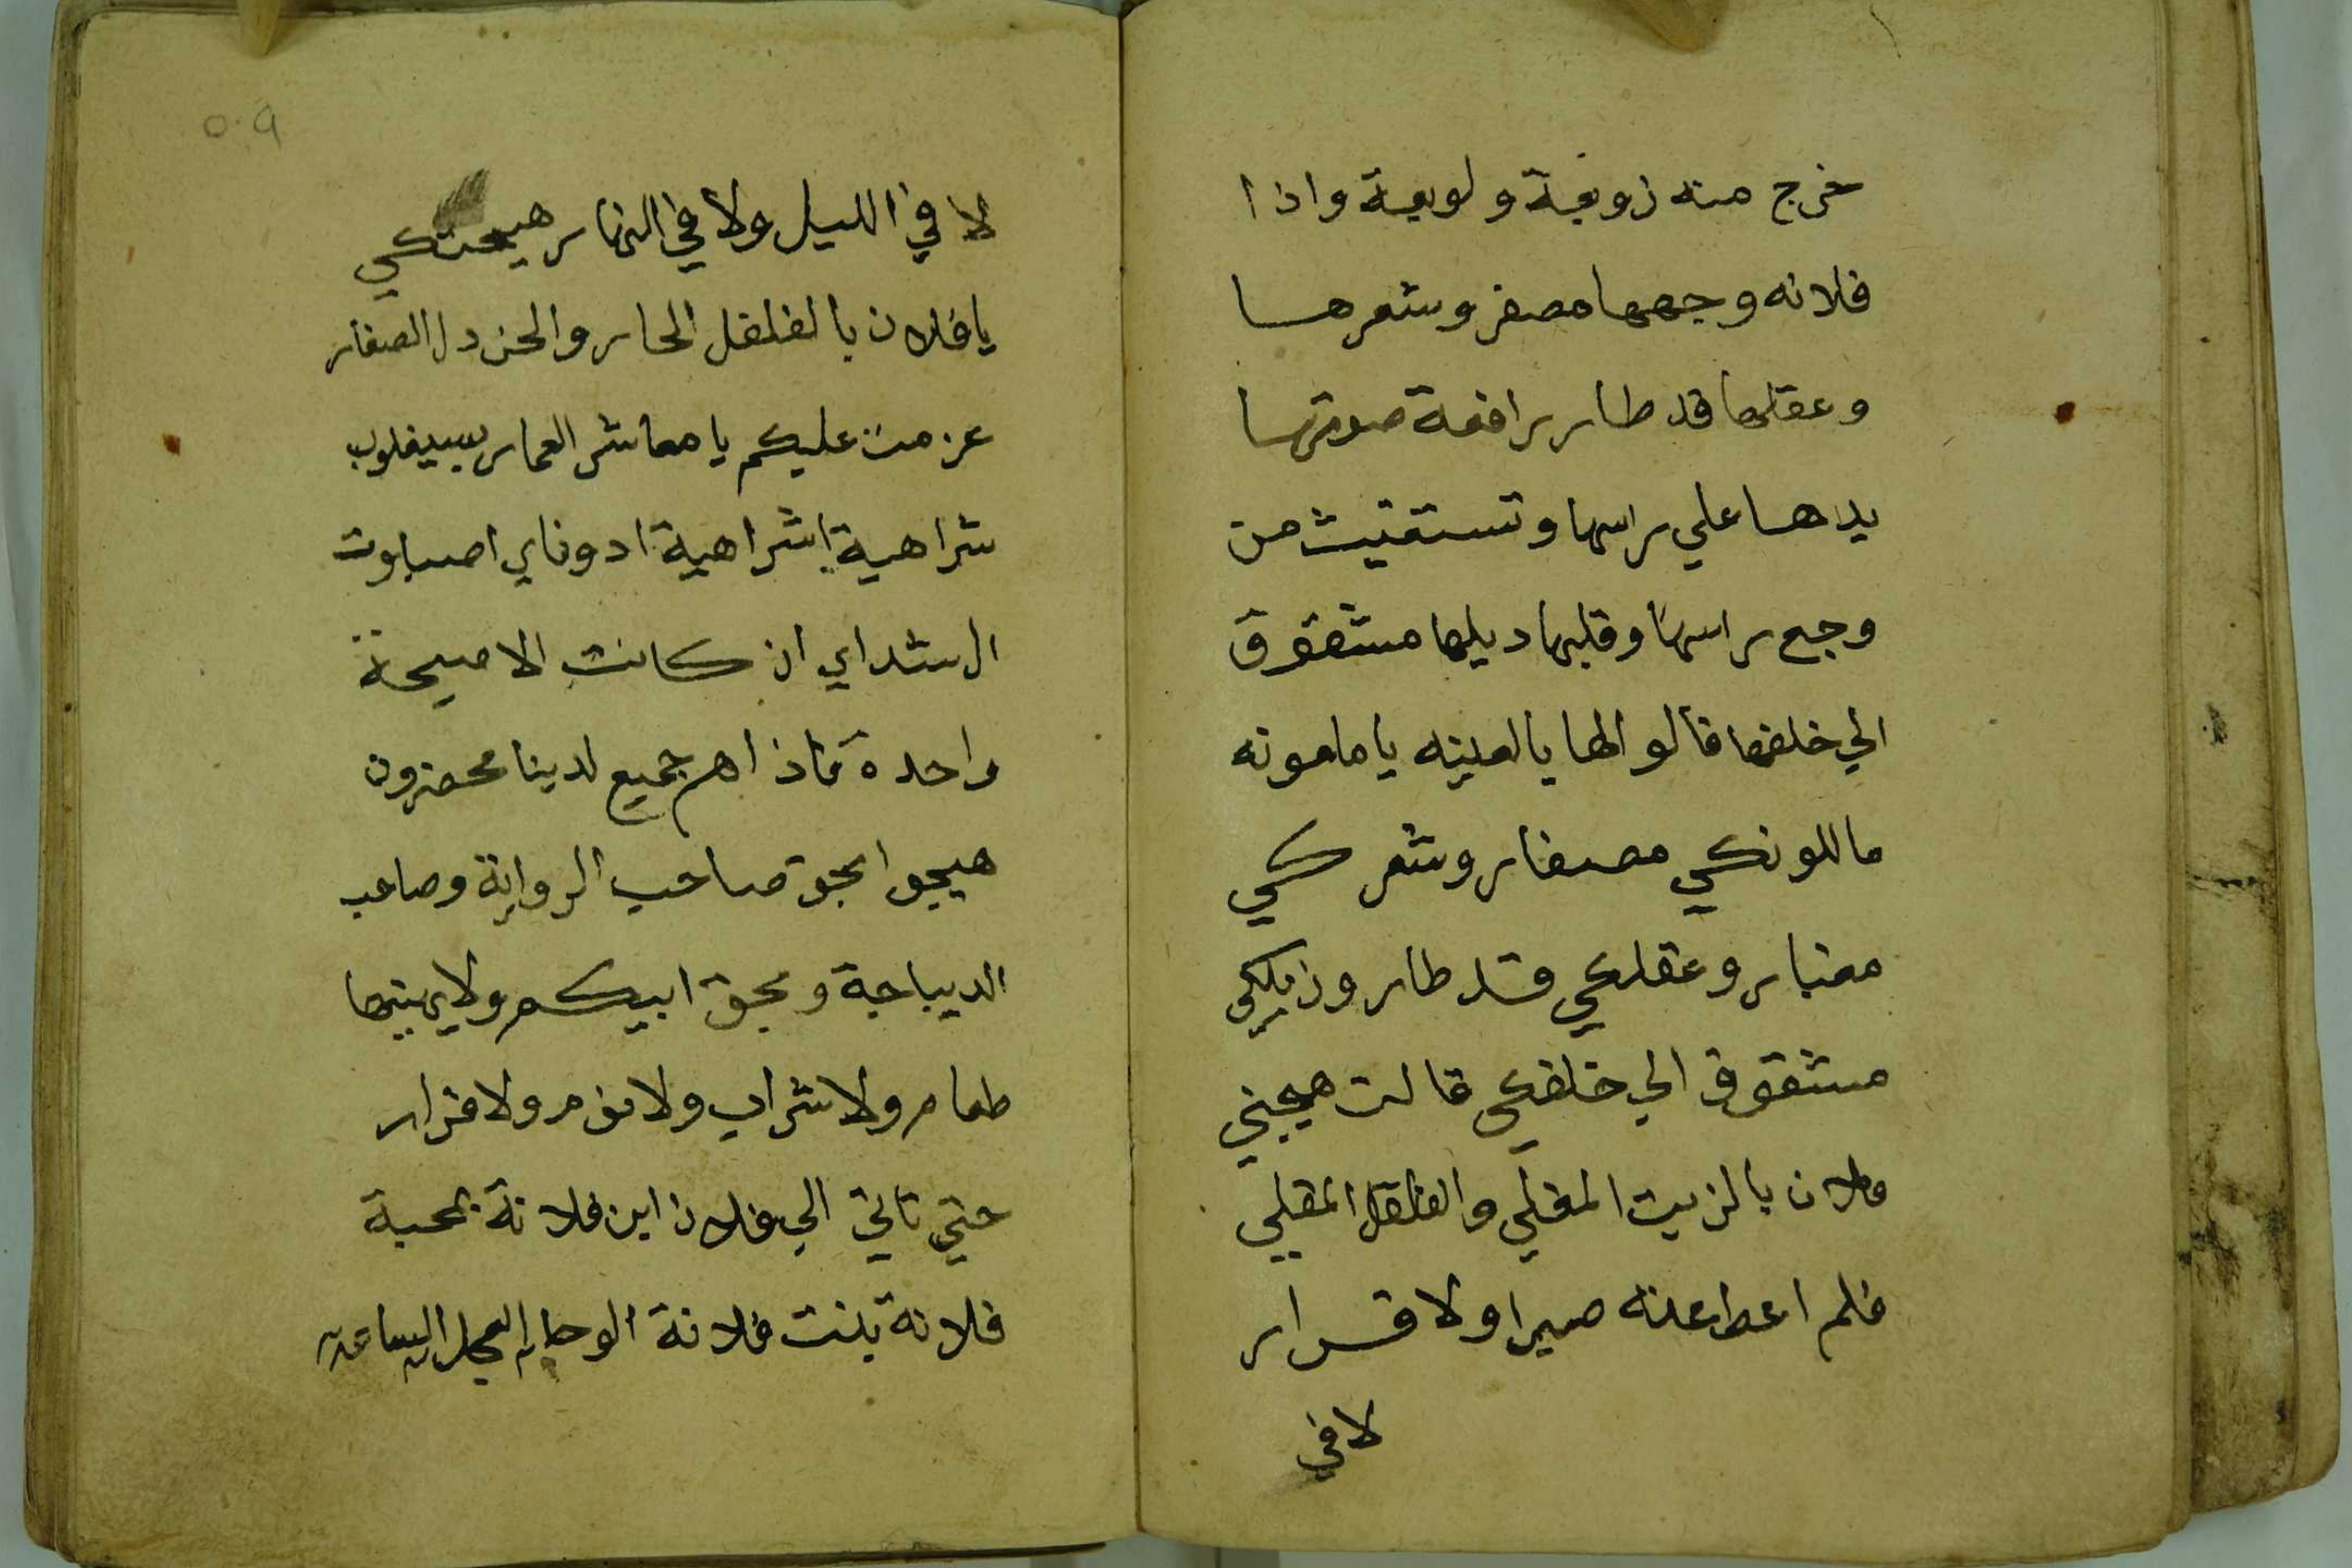 خرج منه زوبعة ولوبعة واذا
فلانه وجهها مصفر وشعرها
وعقلها قد طار رافعة صوتها
يدها علي راسها وتستغيث من
وجع راسها وقلبها ديلها مشقوق
الي خلفها قالوا لها يا لعينه يا ملعونه
ما للونكي مصفار وشعركي
مغبار وعقلكي قد طار وذيلكي
مشقوق الي خلفكي قالت هيجني
فلان بالزيت المغلي والفلفل المقلي
فلم اعط عنه صبرا ولا قرار
لا في
٥٠٩
لا في الليل ولا في النهار هيجتكي
يا فلان بالفلفل الحار والخردل الصغار
عزمت عليكم يا معاشر العمار
شراهية اشراهية ادوناي اصباوت
ال شداي ان كانت الا صيحة
واحدة فاذا هم جميع لدينا محضرون
هيجوا بحق صاحب الرواية وصاحب
الديباجة وبحق ابيكم ولا يهنيها
طعام ولا شراب ولا نوم ولا قرار
حتي تاتي الي فلان ابن فلانة بمحبة
فلانة بنت فلانة الوحا العجل الساعة